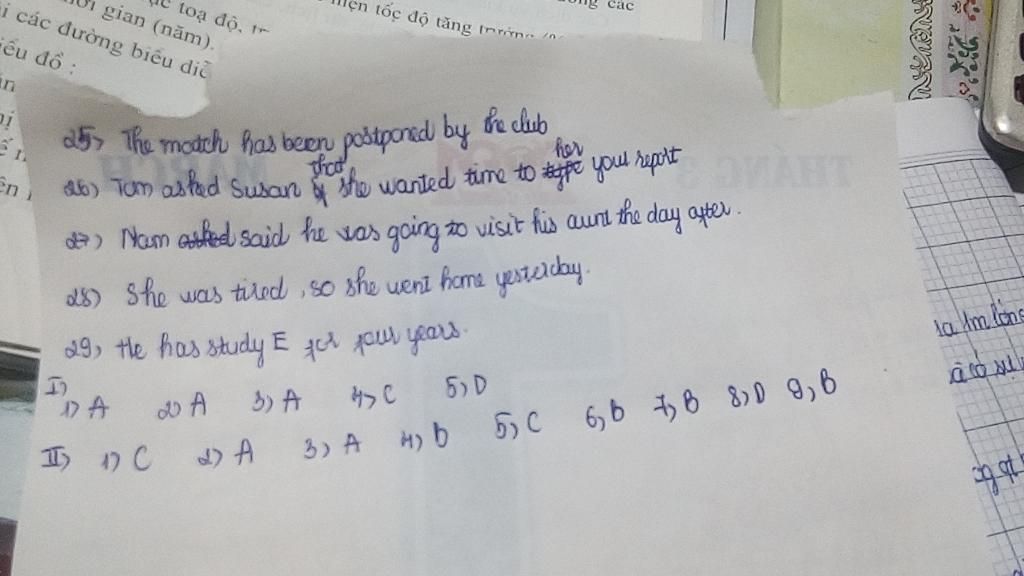 ục toạ độ, tr
hiện tốc độ tăng trưởng
ời gian (năm).
i các đường biểu diễ
iểu đồ :
THÁNG 3
MARCH
25) The match has been postponed by the club
that her
26) Tom asked Susan if she wanted time to type your report
27) Nam asked said he was going to visit his aunt the day after.
28) She was tired, so she went home yesterday.
29) He has study E for four years.
I)
1) A 2) A 3) A 4) C 5) D
II) 1) C 2) A 3) A 4) D 5) C 6) B 7) B 8) D 9) B